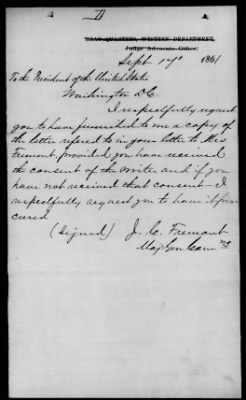 HEAD-QUARTERS, WESTERN DEPARTMENT,
Judge Advocate Office.
Sept 17" 1861
To the President of the United States
Washington D.C.
I respectfully request
you to have furnished to me a copy of
the letter refered to in your letter to Mrs
Fremont, provided you have received
the consent of the writer and if you
have not received that consent - I
respectfully request you to have it pro
cured
(Signed) J. C. Fremont
Maj Gen Com'ng